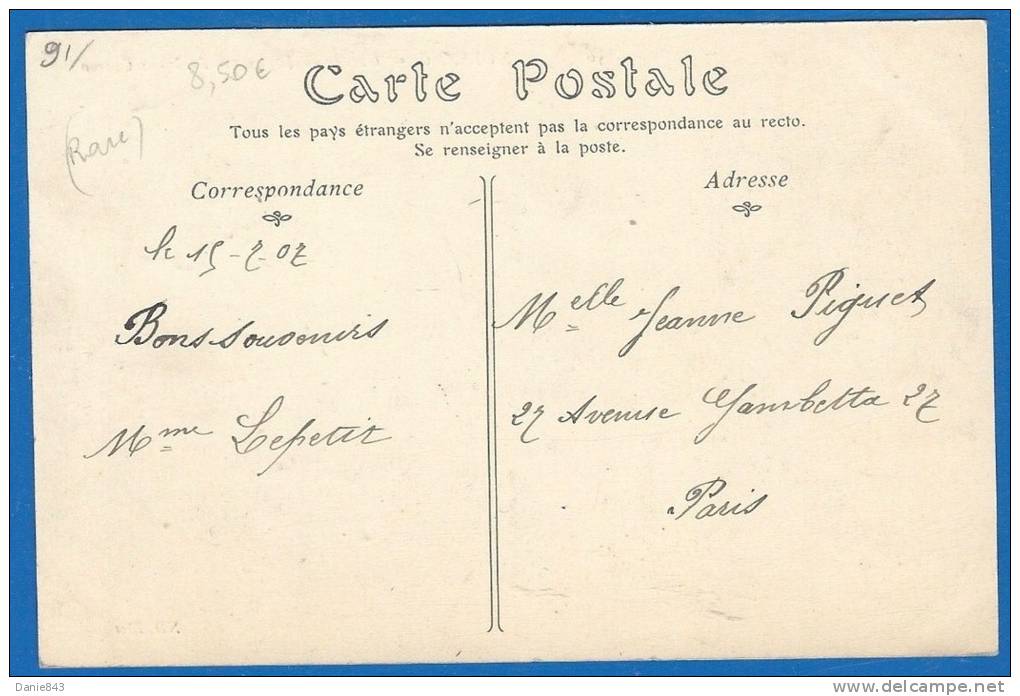 91/
8,50€
(Rare)
Carte Postale
Tous les pays étrangers n'acceptent pas la correspondance au recto.
Se renseigner à la poste.
Correspondance
le 15-7-07
Bons souvenirs
Mme Lepetit
Adresse
Melle Jeanne Piguet
27 Avenue Gambetta 27
Paris
Danie843
http://www.delcampe.net